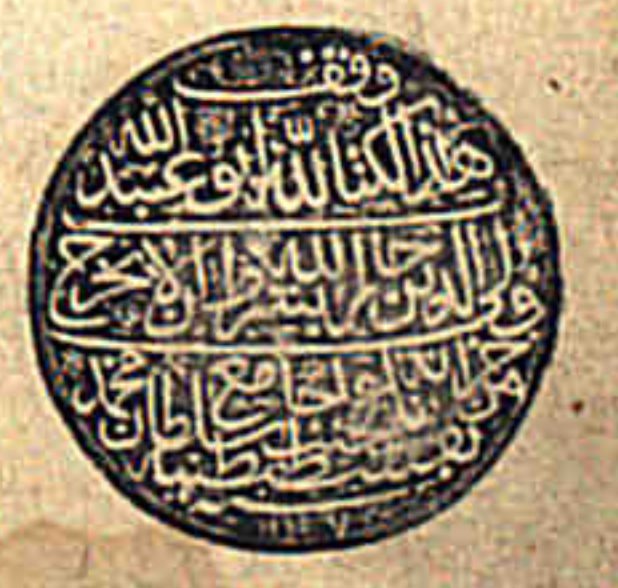 وقف
هذا الكتاب لله ابو عبد الله
ولى الدين جار الله بشرط ان لا يخرج
من خزانة بناها بجوار جامع سلطان محمد
بقسطنطينية